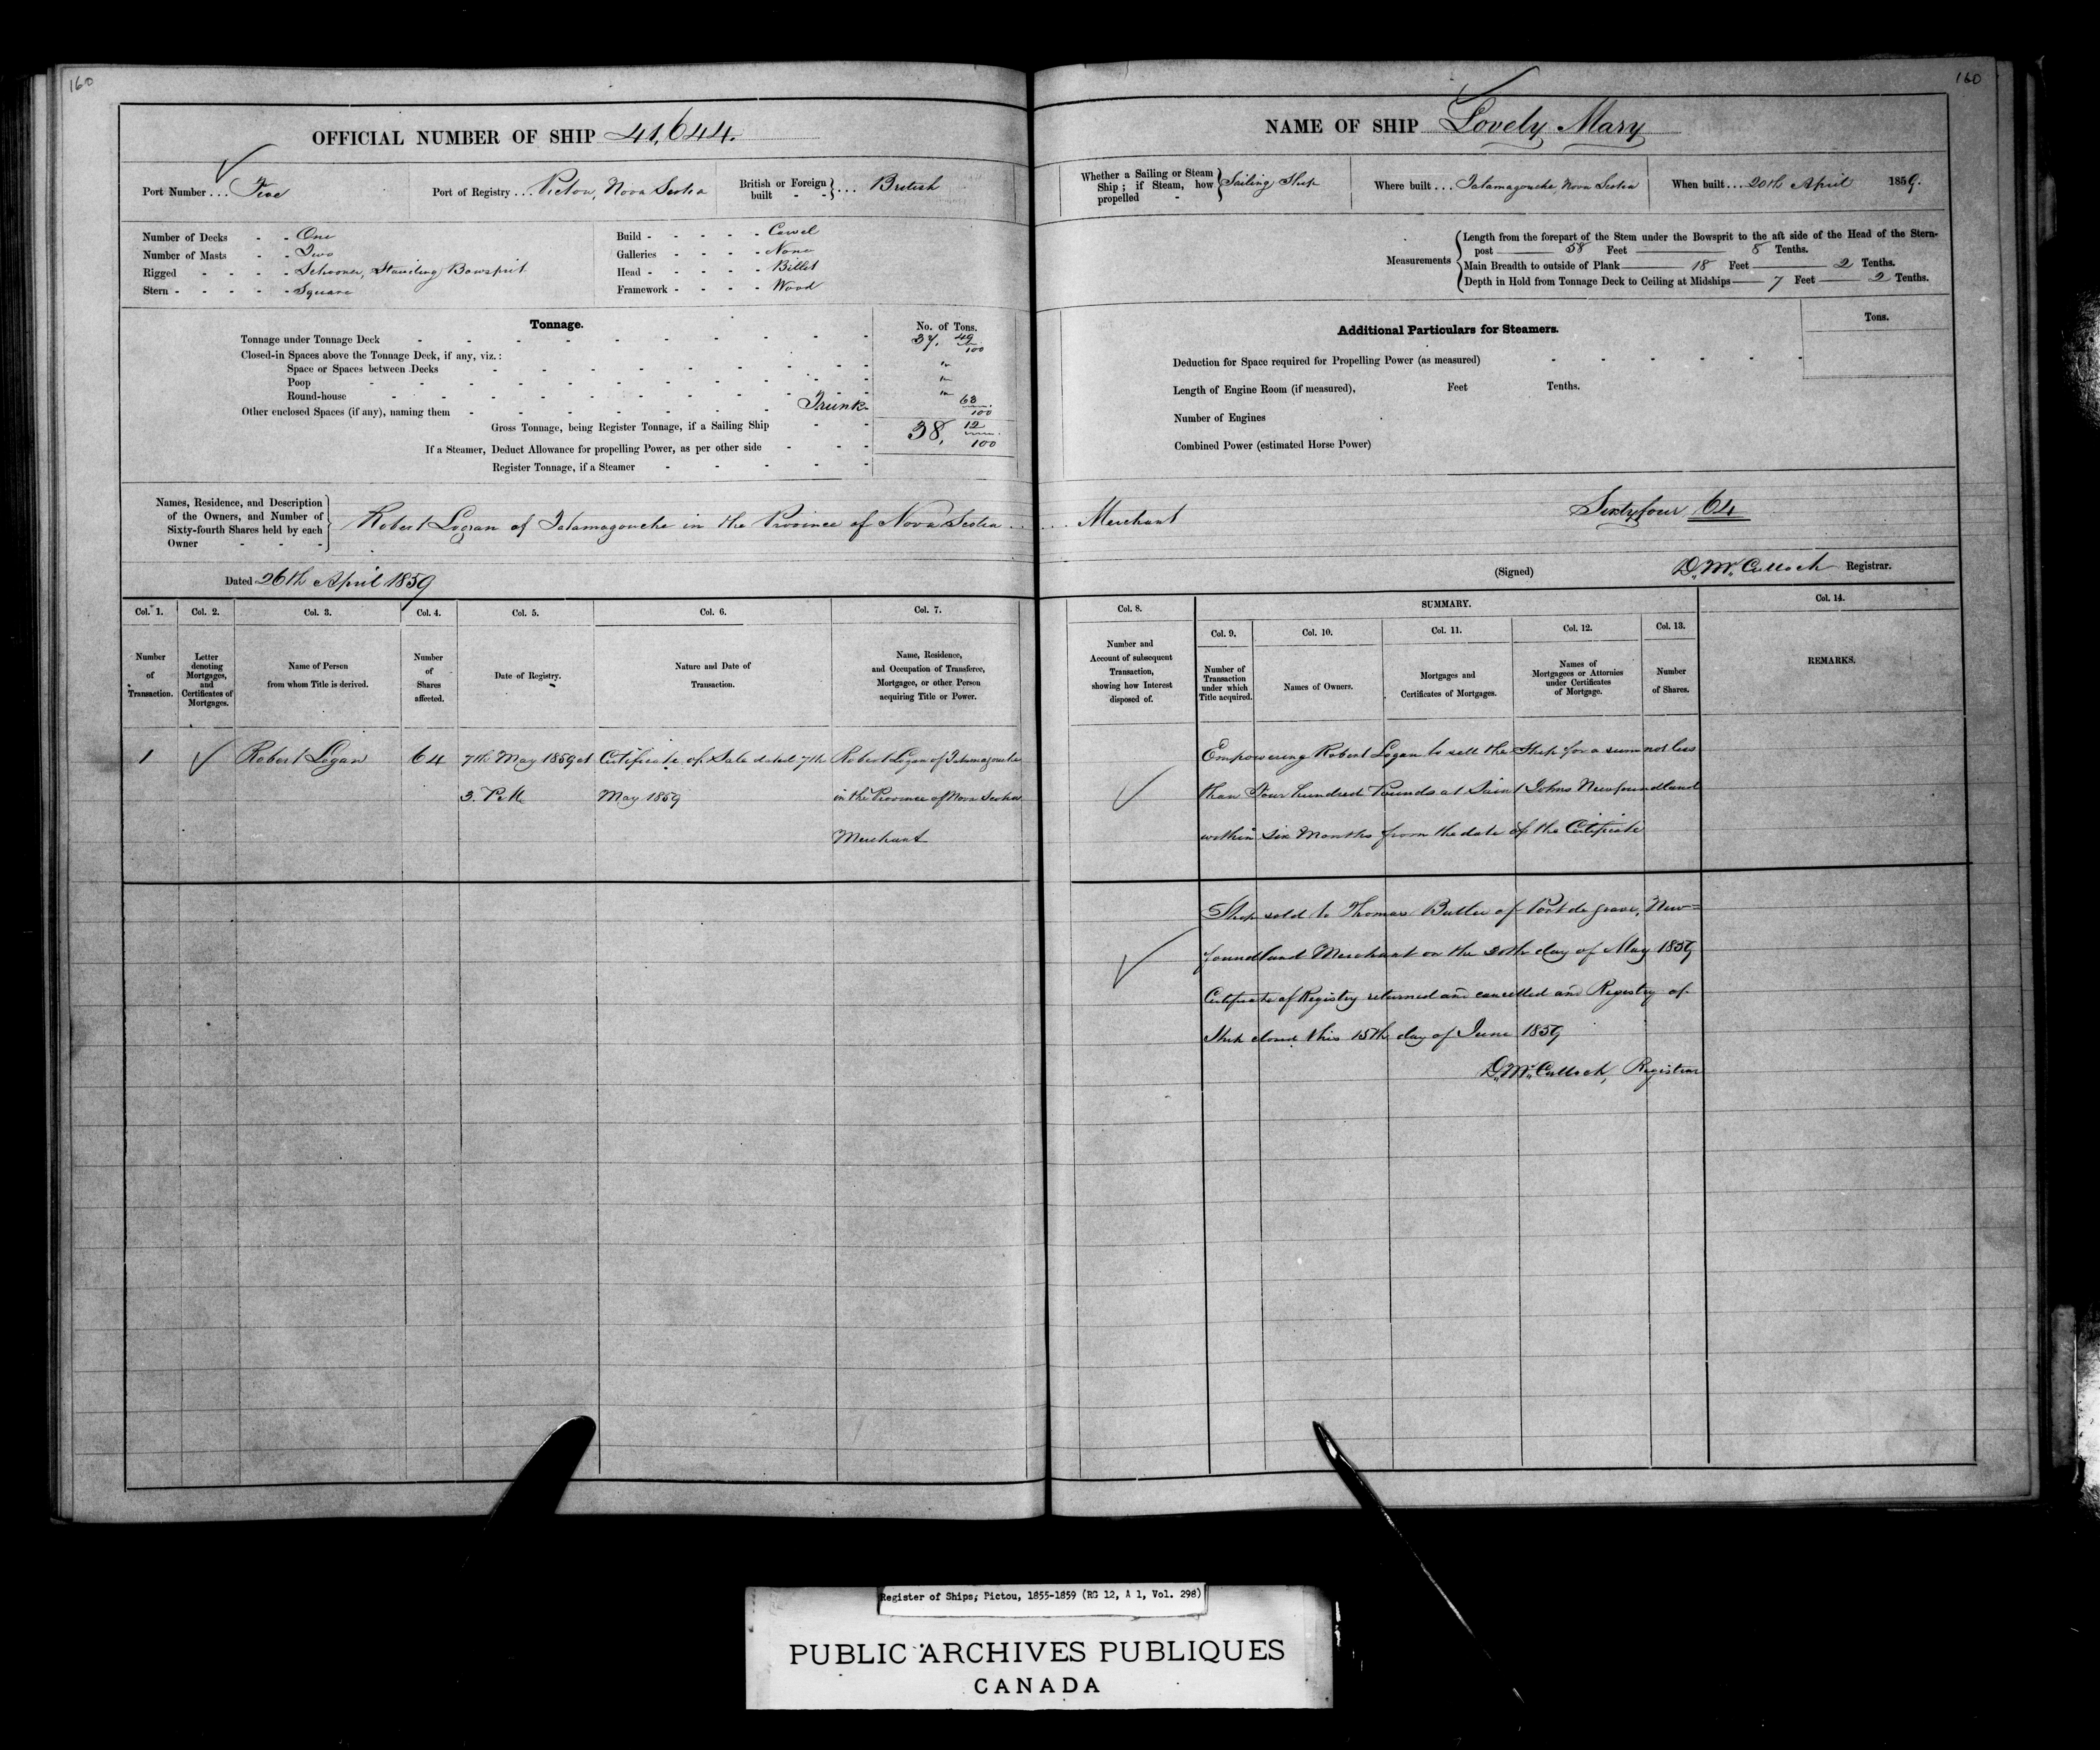 160
160
OFFICIAL NUMBER OF SHIP 41,644.
Port Number ... Five
Port of Registry ... Pictou, Nova Scotia
British or Foreign built - - } ... British
Number of Decks - - One
Number of Masts - - Two
Rigged - - - - Schooner, Standing Bowsprit
Stern - - - - - Square
Build - - - - - Carvel
Galleries - - - - None
Head - - - - - Billet
Framework - - - - Wood
Tonnage.
No. of Tons.
Tonnage under Tonnage Deck 37, 49/100
Closed-in Spaces above the Tonnage Deck, if any, viz.:
Space or Spaces between Decks "
Poop "
Round-house "
Other enclosed Spaces (if any), naming them Trunk 63/100
Gross Tonnage, being Register Tonnage, if a Sailing Ship 38, 12/100
If a Steamer, Deduct Allowance for propelling Power, as per other side
Register Tonnage, if a Steamer
Names, Residence, and Description of the Owners, and Number of Sixty-fourth Shares held by each Owner - - -
Robert Logan of Tatamagouche in the Province of Nova Scotia ..
Dated 26th April 1859
NAME OF SHIP Lovely Mary
Whether a Sailing or Steam Ship; if Steam, how propelled - } Sailing Ship
Where built ... Tatamagouche Nova Scotia
When built ... 20th April 1859.
Measurements
Length from the forepart of the Stem under the Bowsprit to the aft side of the Head of the Stern-
post 58 Feet 8 Tenths.
Main Breadth to outside of Plank 18 Feet 2 Tenths.
Depth in Hold from Tonnage Deck to Ceiling at Midships 7 Feet 2 Tenths.
Additional Particulars for Steamers.
Tons.
Deduction for Space required for Propelling Power (as measured)
Length of Engine Room (if measured), Feet Tenths.
Number of Engines
Combined Power (estimated Horse Power)
.... Merchant Sixtyfour 64
(Signed) D. McCulloch Registrar.
Col. 1. Col. 2. Col. 3. Col. 4. Col. 5. Col. 6. Col. 7.
Number of Transaction.
Letter denoting Mortgages, and Certificates of Mortgages.
Name of Person from whom Title is derived.
Number of Shares affected.
Date of Registry.
Nature and Date of Transaction.
Name, Residence, and Occupation of Transferee, Mortgagee, or other Person acquiring Title or Power.
Col. 8. SUMMARY. Col. 14.
Col. 9. Col. 10. Col. 11. Col. 12. Col. 13.
Number and Account of subsequent Transaction, showing how Interest disposed of.
Number of Transaction under which Title acquired.
Names of Owners.
Mortgages and Certificates of Mortgages.
Names of Mortgagees or Attornies under Certificates of Mortgage.
Number of Shares.
REMARKS.
1 Robert Logan 64 7th May 1859 at Certificate of Sale dated 7th Robert Logan of Tatamagouche
3. P.M. May 1859 in the Province of Nova Scotia
Merchant
Empowering Robert Logan to sell the Ship for a sum not less
than Four hundred Pounds at Saint Johns Newfoundland
within six Months from the date of the Certificate
Ship sold to Thomas Butler of Port de grave, New=
foundland Merchant on the 30th day of May 1859
Certificate of Registry returned and cancelled and Registry of
Ship closed this 15th day of June 1859
D. McCulloch, Registrar
Register of Ships; Pictou, 1855-1859 (RG 12, A 1, Vol. 298)
PUBLIC ARCHIVES PUBLIQUES
CANADA